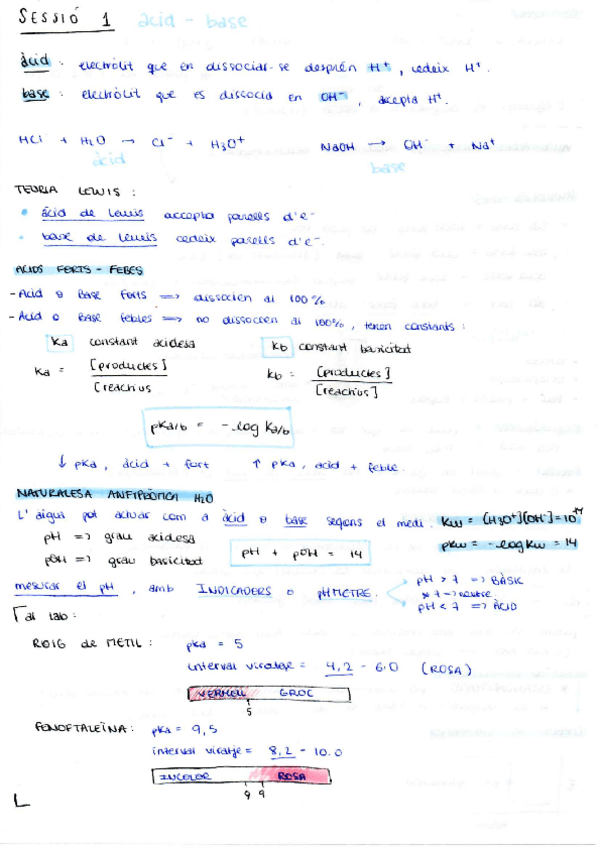 SESSIÓ 1 àcid - base
àcid : electròlit que en dissociar-se desprèn H⁺, cedeix H⁺.
base : electròlit que es dissocia en OH⁻, accepta H⁺.
HCl + H₂O → Cl⁻ + H₃O⁺ NaOH → OH⁻ + Na⁺
àcid base
TEORIA LEWIS :
• àcid de Lewis accepta parells d'e⁻
• base de Lewis cedeix parells d'e⁻.
ÀCIDS FORTS - FEBLES
- Àcid o Base Forts => dissocien al 100%
- Àcid o Base febles => no dissocien al 100%, tenen constants :
Ka constant acidesa Kb constant basicitat
Ka = [productes] / [reactius] Kb = [productes] / [reactius]
pKa/b = - log Ka/b
↓ pKa, àcid + fort ↑ pKa, acid + feble.
NATURALESA ANFIPRÒTICA H₂O
L'aigua pot actuar com a àcid o base segons el medi. Kw = [H₃O⁺][OH⁻] = 10⁻¹⁴
pH => grau acidesa pKw = - log Kw = 14
pOH => grau basicitat pH + pOH = 14
mesurar el pH, amb INDICADORS o pHMETRE. pH > 7 => BÀSIC
7 → neutre
pH < 7 => ÀCID
al lab:
ROIG de METIL : pKa = 5
interval viratge = 4,2 - 6.0 (ROSA)
VERMELL GROC
5
FENOFTALEÏNA : pKa = 9,5
interval viratje = 8,2 - 10.0
INCOLOR ROSA
9 9